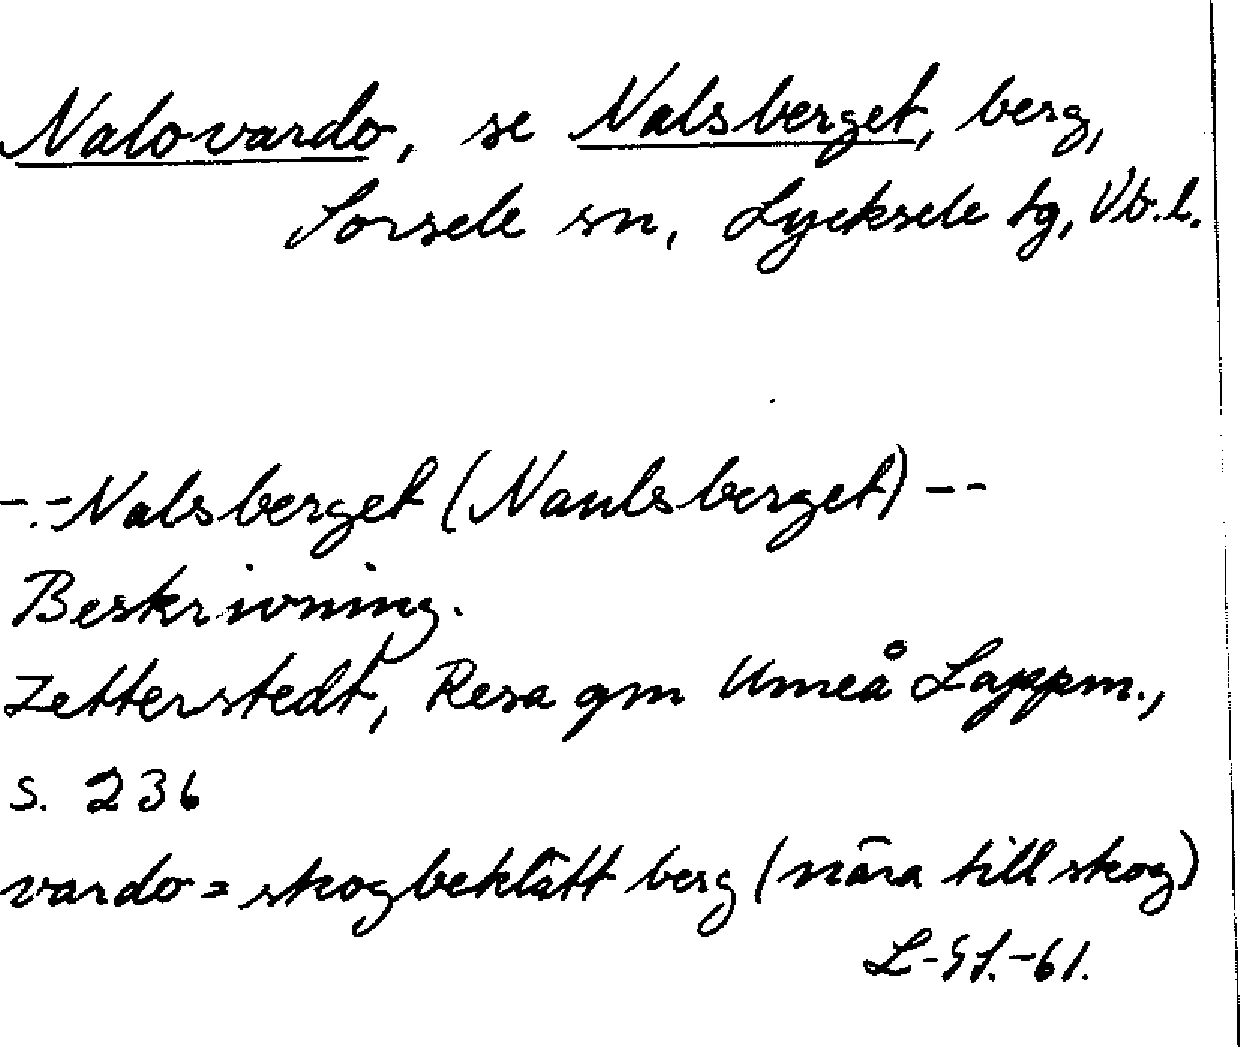 Nalovardo, se Nalsberget, berg,
Sorsele sn, Lycksele tg, Vb.l.
-.-Nalsberget (Naulsberget) --
Beskrivning.
Zetterstedt, Resa gm Umeå Lappm.,
s. 236
vardo = skogbeklätt berg (nära till skog)